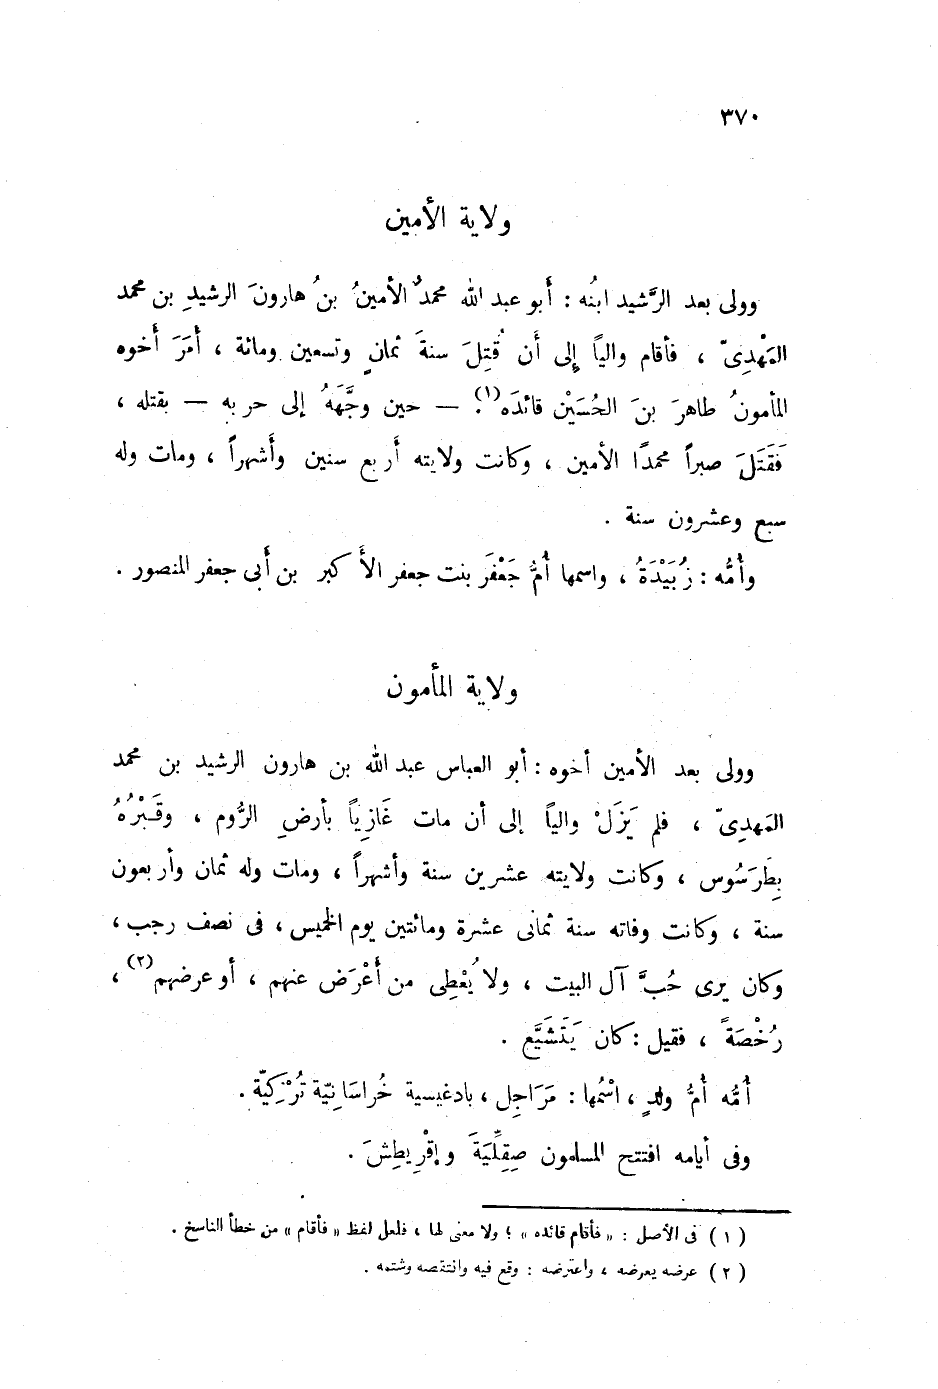 ٣٧٠
ولاية الأمين
وولى بعد الرَّشيد ابنُه : أَبو عبد الله محمدٌ الأمينُ بنُ هارونَ الرشيدِ بن محمد
المَهْدِىّ ، فأقام والياً إِلى أَن قُتِلَ سنةَ ثمانٍ وتسعين ومائة ، أَمَرَ أَخوه
المأمونُ طاهرَ بنَ الحُسَيْن قائدَه(١) — حين وجَّهَهُ إلى حربه — بقتله ،
فَقَتَلَ صبراً محمدًا الأمين ، وكانت ولايته أَربع سنين وأَشهراً ، ومات وله
سبع وعشرون سنة .
وأُمُّه : زُبَيْدَةُ ، واسمها أُمُّ جَعْفَر بنت جعفر الأَكبر بن أَبى جعفر المنصور .
ولاية المأمون
وولى بعد الأمين أخوه : أبو العباس عبد الله بن هارون الرشيد بن محمد
المَهدِىّ ، فلم يَزَلْ والياً إلى أن مات غَازِياً بأرضِ الرُّوم ، وقَبْرُهُ
بِطَرَسُوس ، وكانت ولايته عشرين سنة وأشهراً ، ومات وله ثمان وأربعون
سنة ، وكانت وفاته سنة ثمانى عشرة ومائتين يوم الخميس ، فى نصف رجب ،
وكان يرى حُبَّ آل البيت ، ولا يُعْطِى من أَعْرَض عنهم ، أو عرضهم(٢) ،
رُخْصَةً ، فقيل : كان يَتَشَيَّع .
أُمُّه أُمُّ ولدٍ ، اسْمُها : مَرَاجِل ، بادغيسية خُراسَانِيّة تُرْكِيَّة .
وفى أيامه افتتح المسلمون صِقِلِّيَةَ وإقْرِيطِشَ .
( ١ ) فى الأصل : « فأقام قائده » ؛ ولا معنى لها ، فلعل لفظ « فأقام » من خطأ الناسخ .
( ٢ ) عرضه يعرضه ، واعترضه : وقع فيه وانتقصه وشتمه .